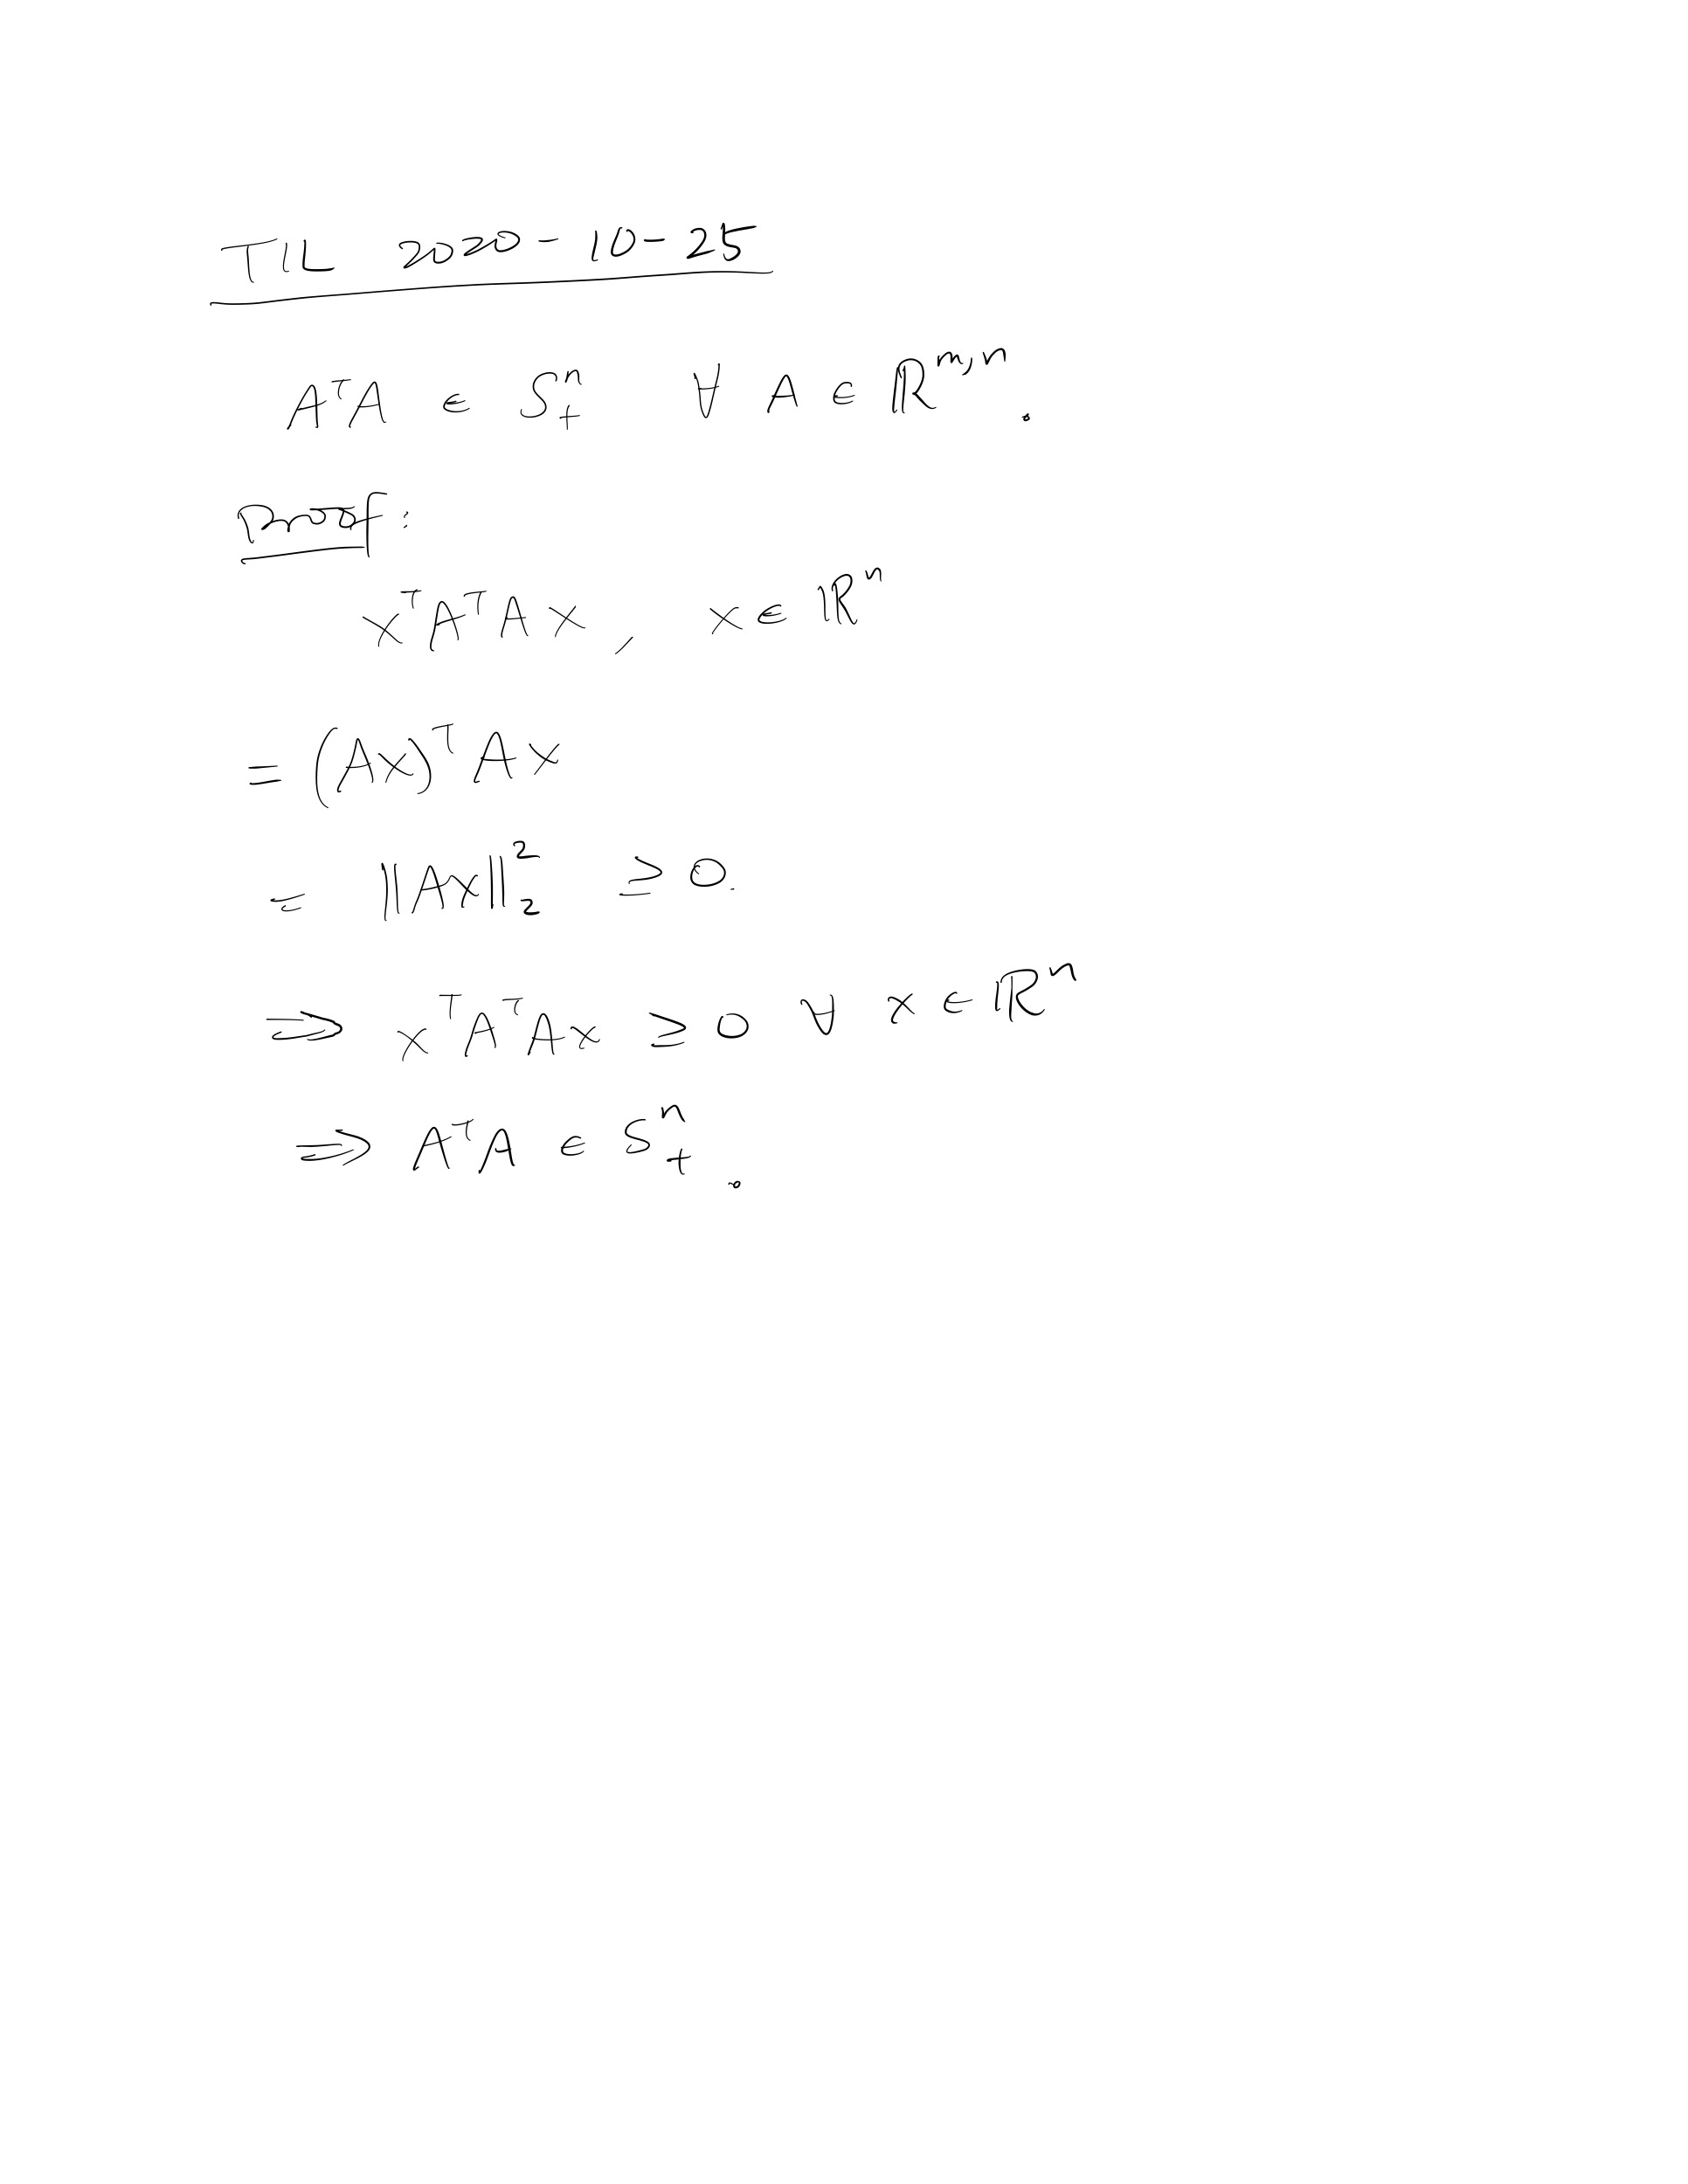 TIL 2020-10-25
AᵀA ∈ S₊ⁿ ∀ A ∈ ℝᵐ,ⁿ.
Proof:
xᵀAᵀAx, x ∈ ℝⁿ
= (Ax)ᵀAx
= ||Ax||₂² ≥ 0.
⇒ xᵀAᵀAx ≥ 0 ∀ x ∈ ℝⁿ
⇒ AᵀA ∈ S₊ⁿ.